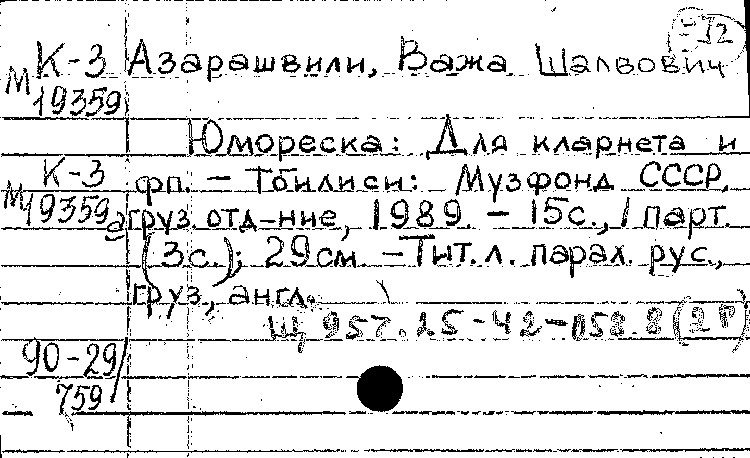 -12
К-3 Азарашвили, Важа Шалвович
М 19359
Юмореска: Для кларнета и
К-3 фп. — Тбилиси: Музфонд СССР,
М 19359а груз. отд-ние, 1989. — 15с., 1 парт.
(3с.); 29см. — Тит.л. парал. рус.,
груз., англ.
Щ 957.25-42-058.8(2Г)
90-29/
759